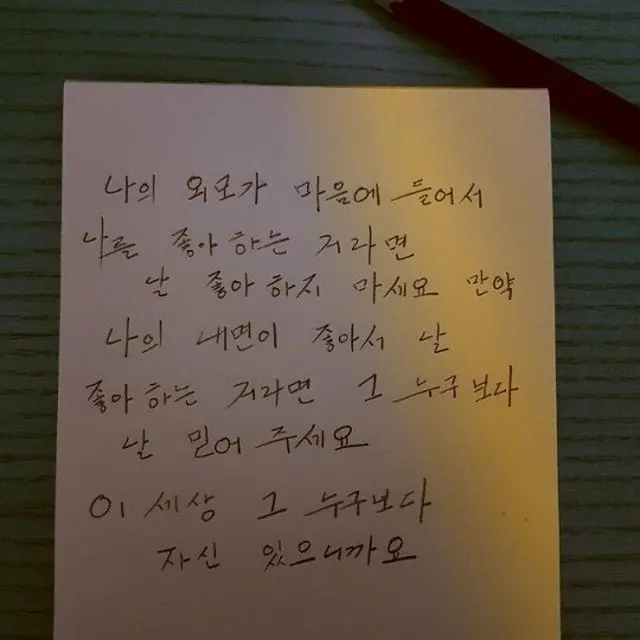 나의 외모가 마음에 들어서
나를 좋아 하는 거라면
날 좋아 하지 마세요 만약
나의 내면이 좋아서 날
좋아 하는 거라면 그 누구보다
날 믿어 주세요
이 세상 그 누구보다
자신 있으니까요